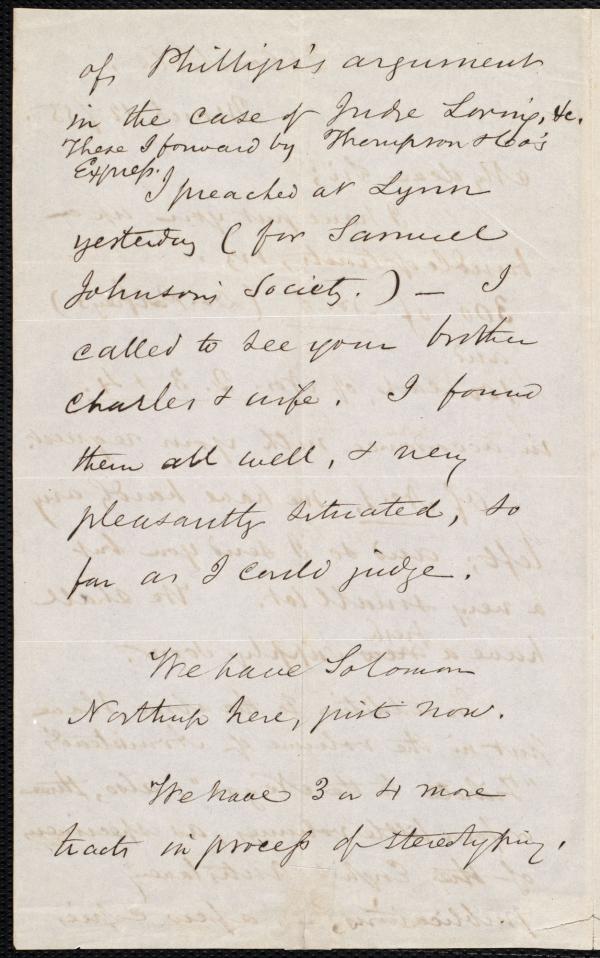 of Phillips's argument
in the case of Judge Loring, &c.
These I forward by Thompson & Co's
Express.
I preached at Lynn
yesterday (for Samuel
Johnson's Society.) — I
called to see your brother
Charles & wife. I found
them all well, & very
pleasantly situated, so
far as I could judge.
We have Solomon
Northup here, just now.
We have 3 or 4 more
tracts in process of stereotyping.